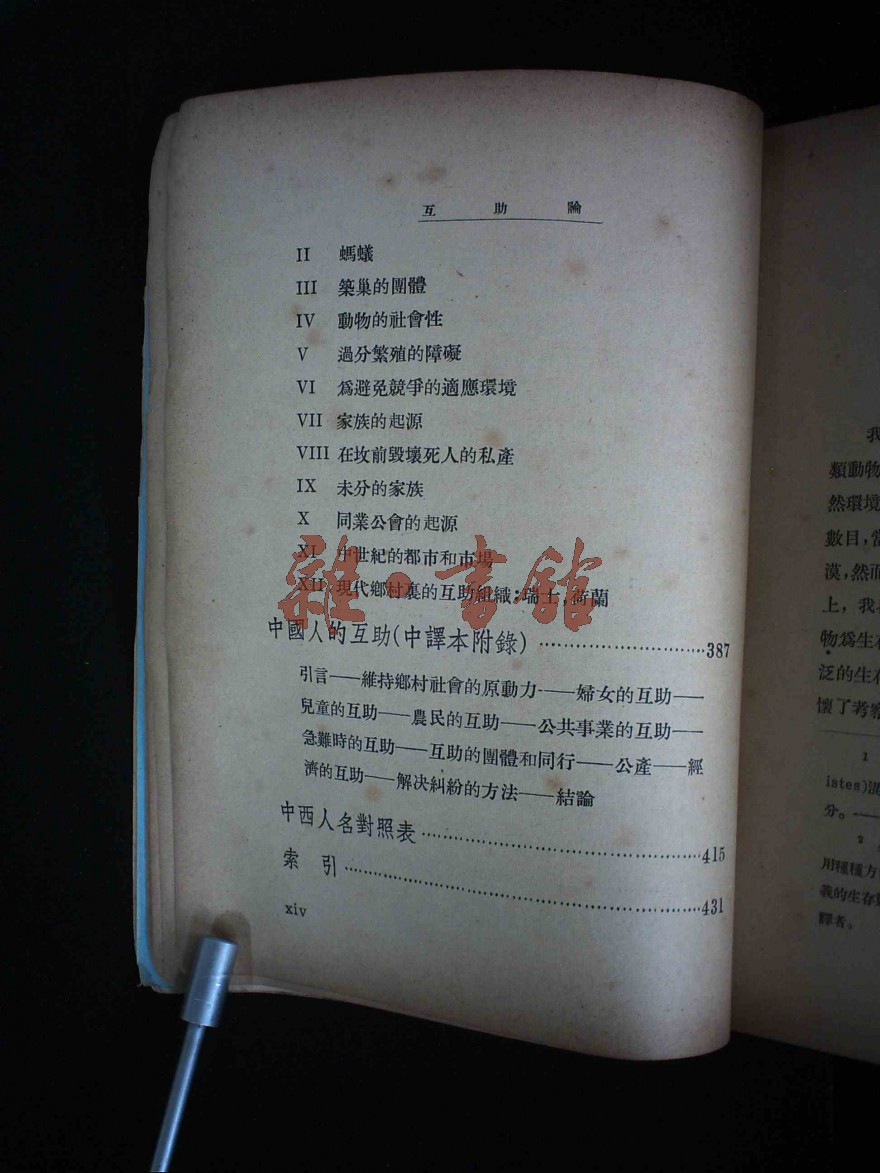 互助論
II 螞蟻
III 築巢的團體
IV 動物的社會性
V 過分繁殖的障礙
VI 爲避免競爭的適應環境
VII 家族的起源
VIII 在坟前毀壞死人的私產
IX 未分的家族
X 同業公會的起源
XI 中世紀的都市和市場
XII 現代鄉村裏的互助組織:瑞士,荷蘭
中國人的互助(中譯本附錄)……………………387
引言——維持鄉村社會的原動力——婦女的互助——
兒童的互助——農民的互助——公共事業的互助——
急難時的互助——互助的團體和同行——公產——經
濟的互助——解決糾紛的方法——結論
中西人名對照表……………………415
索引……………………431
xiv
雜·書館
我
類動物
然環境
數目,當
漠,然而
上,我
物爲生存
泛的生存
懷了考察
1
iates)
分。——
2
用種種方
義的生存
譯者。